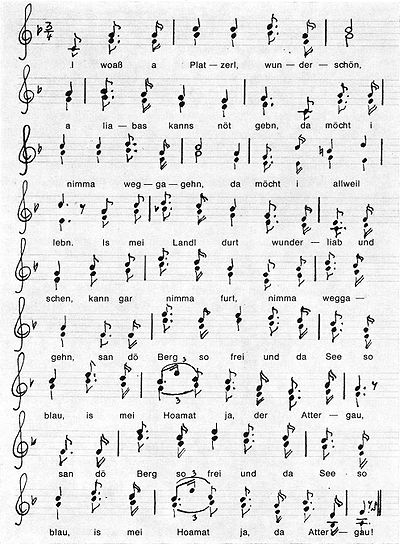 3/4
I woaß a Plat—zerl, wun—der—schön,
a lia—bas kanns nöt gebn, da möcht i
nimma weg—ga—gehn, da möcht i allweil
lebn. Is mei Landl durt wunder—liab und
schen, kann gar nimma furt, nimma wegga—
gehn, san dö Berg so frei und da See so
3
3
blau, is mei Hoamat ja, der Atter—gau,
san dö Berg so frei und da See so
3
3
blau, is mei Hoamat ja, da Atter—gau!